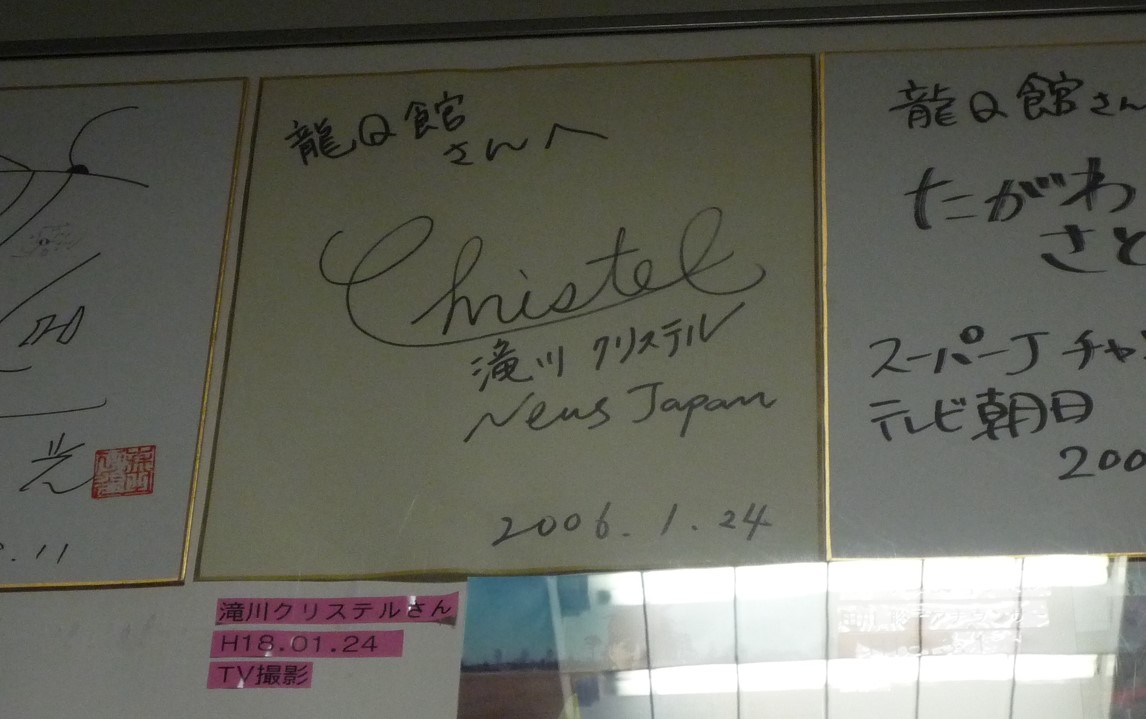 龍Q館
さんへ
Christel
滝川 クリステル
News Japan
2006.1.24
龍Q館さん
たがわ
さと
スーパーJチャン
テレビ朝日
200
光
.11
滝川クリステルさん
H18.01.24
TV撮影